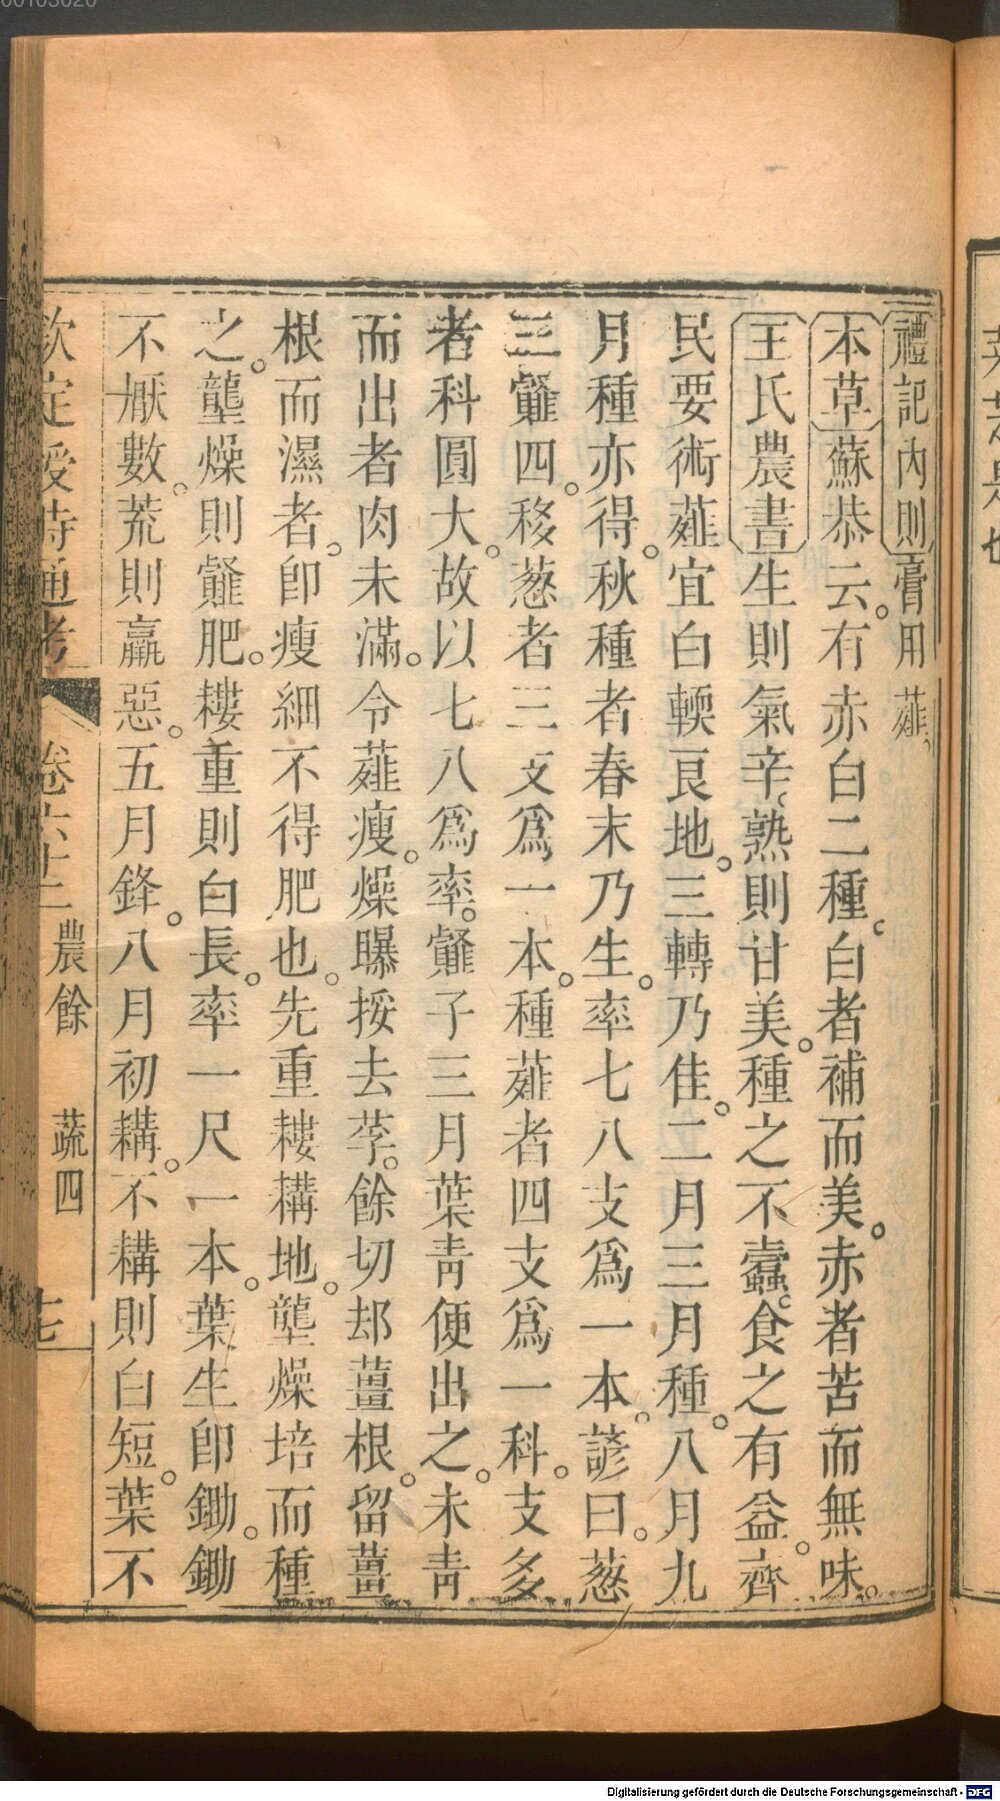 禮記內則膏用薤。
本草蘇恭云。有赤白二種。白者補而美。赤者苦而無味。
王氏農書生則氣辛。熟則甘美。種之不蠹。食之有益。齊
民要術薤宜白輭良地。三轉乃佳。二月三月種。八月九
月種亦得。秋種者春末乃生。率七八支爲一本。諺曰。葱
三薤四。移葱者三支爲一本。種薤者四支爲一科。支多
者科圓大。故以七八爲率。薤子三月葉靑便出之。未靑
而出者肉未滿。令薤瘦。燥曝挼去莩。餘切却薑根。留薑
根而濕者。卽瘦細不得肥也。先重耬耩地。壟燥培而種
之。壟燥則薤肥。耬重則白長。率一尺一本。葉生卽鋤。鋤
不厭數。荒則羸惡。五月鋒。八月初耩。不耩則白短。葉不
欽定授時通考 卷六十二 農餘 蔬四 七
Digitalisierung gefördert durch die Deutsche Forschungsgemeinschaft - DFG